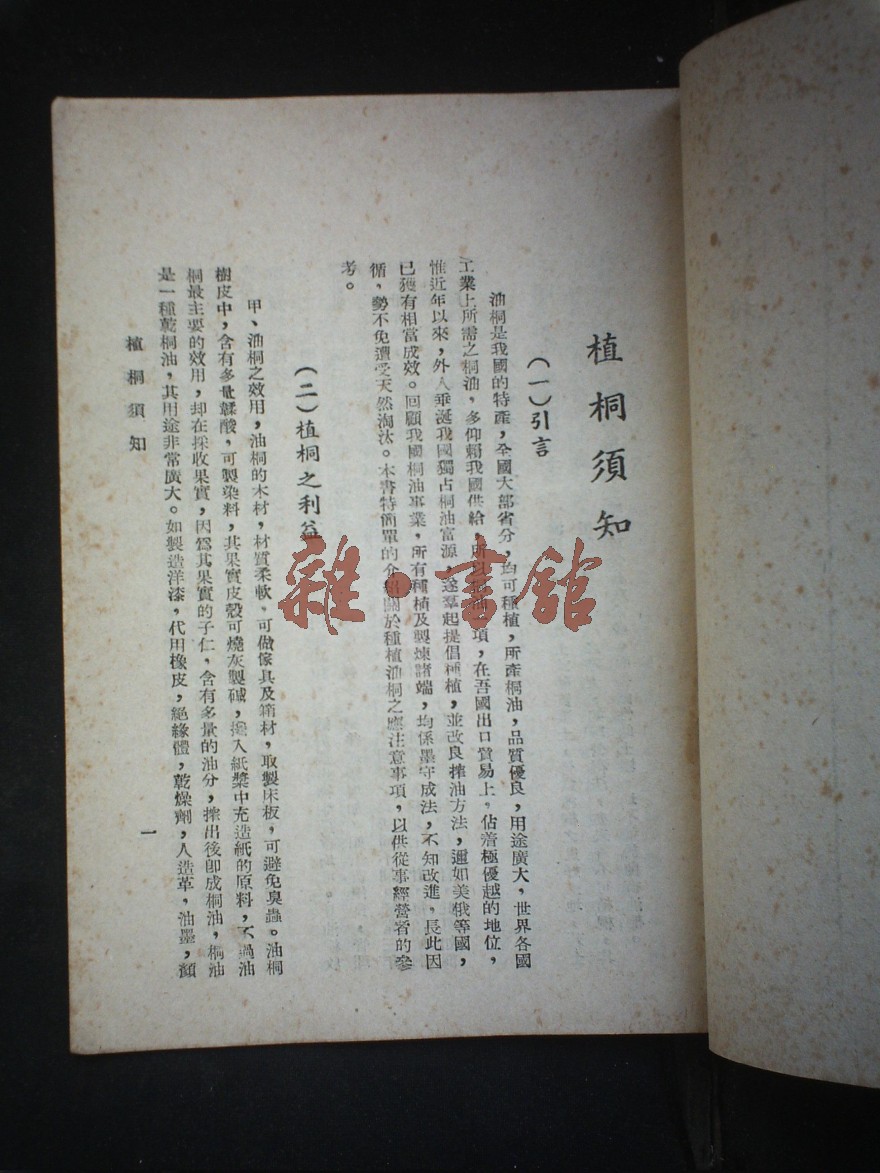 植桐須知
（一）引言
油桐是我國的特產，全國大部省分，均可種植，所產桐油，品質優良，用途廣大，世界各國
工業上所需之桐油，多仰賴我國供給，所以桐油一項，在吾國出口貿易上，佔着極優越的地位，
惟近年以來，外人垂涎我國獨占桐油富源，遂羣起提倡種植，並改良搾油方法，邇如美俄等國，
已獲有相當成效。回顧我國桐油事業，所有種植及製煉諸端，均係墨守成法，不知改進，長此因
循，勢不免遭受天然淘汰。本書特簡單的介紹關於種植油桐之應注意事項，以供從事經營者的參
考。
（二）植桐之利益
甲、油桐之效用，油桐的木材，材質柔軟、可做傢具及箱材，取製床板，可避免臭蟲。油桐
樹皮中，含有多量鞣酸，可製染料，其果實皮殼可燒灰製碱，攙入紙漿中充造紙的原料，不過油
桐最主要的效用，却在採收果實，因爲其果實的子仁，含有多量的油分，搾出後卽成桐油，桐油
是一種乾桐油，其用途非常廣大。如製造洋漆，代用橡皮，絕緣體，乾燥劑，人造革，油墨，顏
植桐須知
一
雜·書館